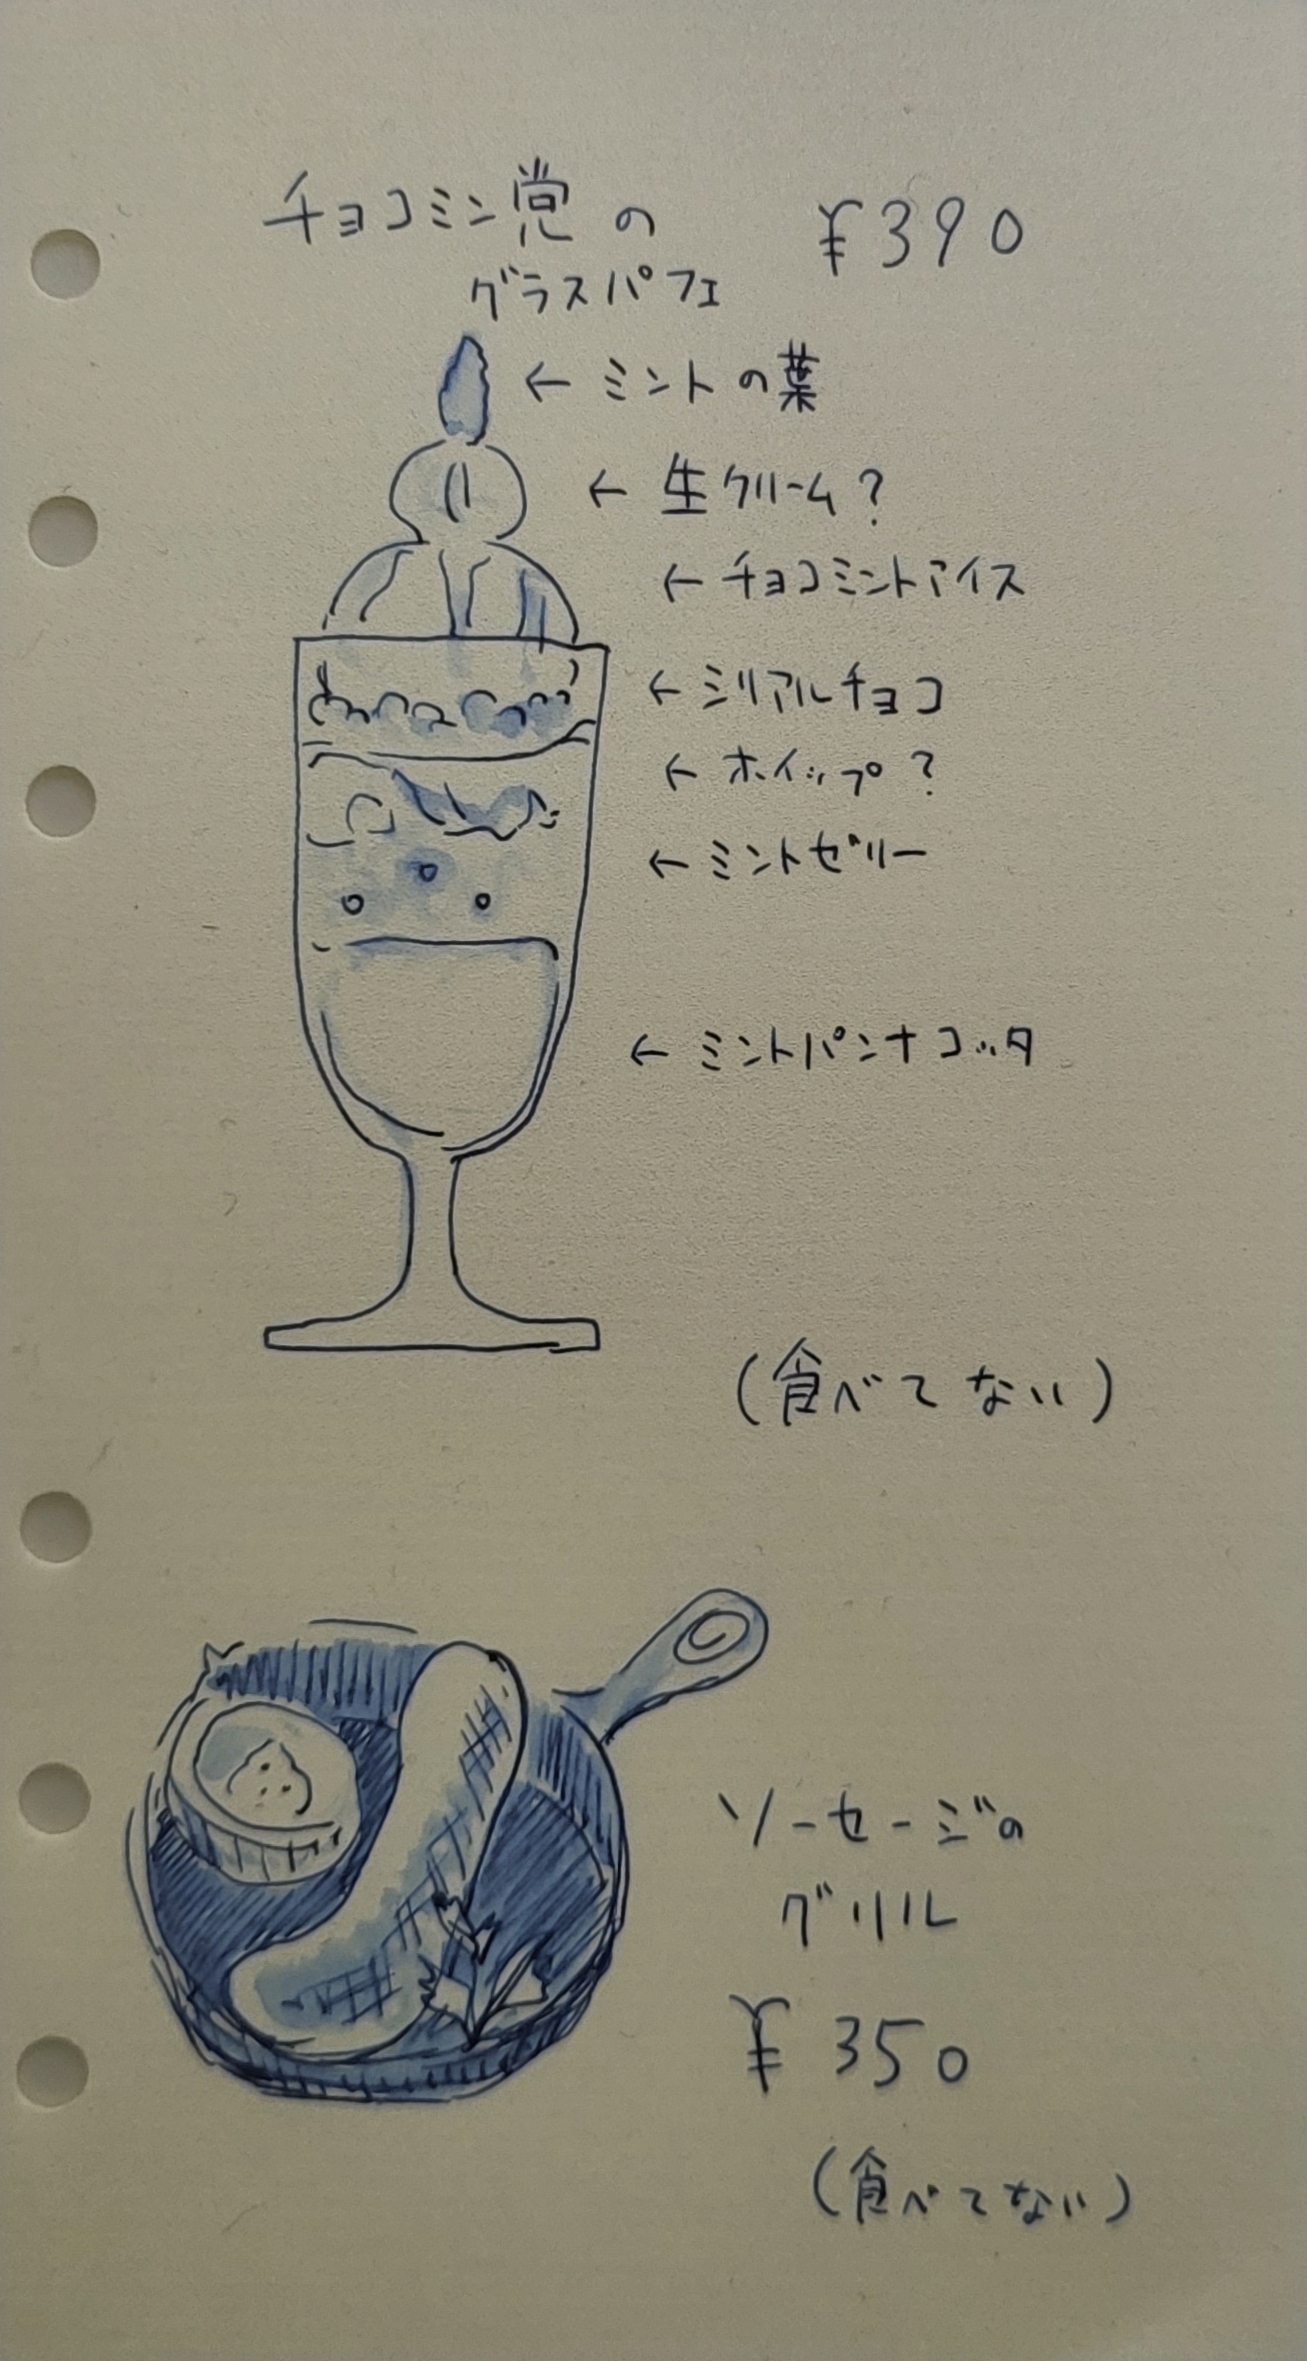 チョコミン党の ¥390
グラスパフェ
← ミントの葉
← 生クリーム?
← チョコミントアイス
← ミリアルチョコ
← ホイップ?
← ミントゼリー
← ミントパンナコッタ
(食べてない)
ソーセージの
グリル
¥350
(食べてない)